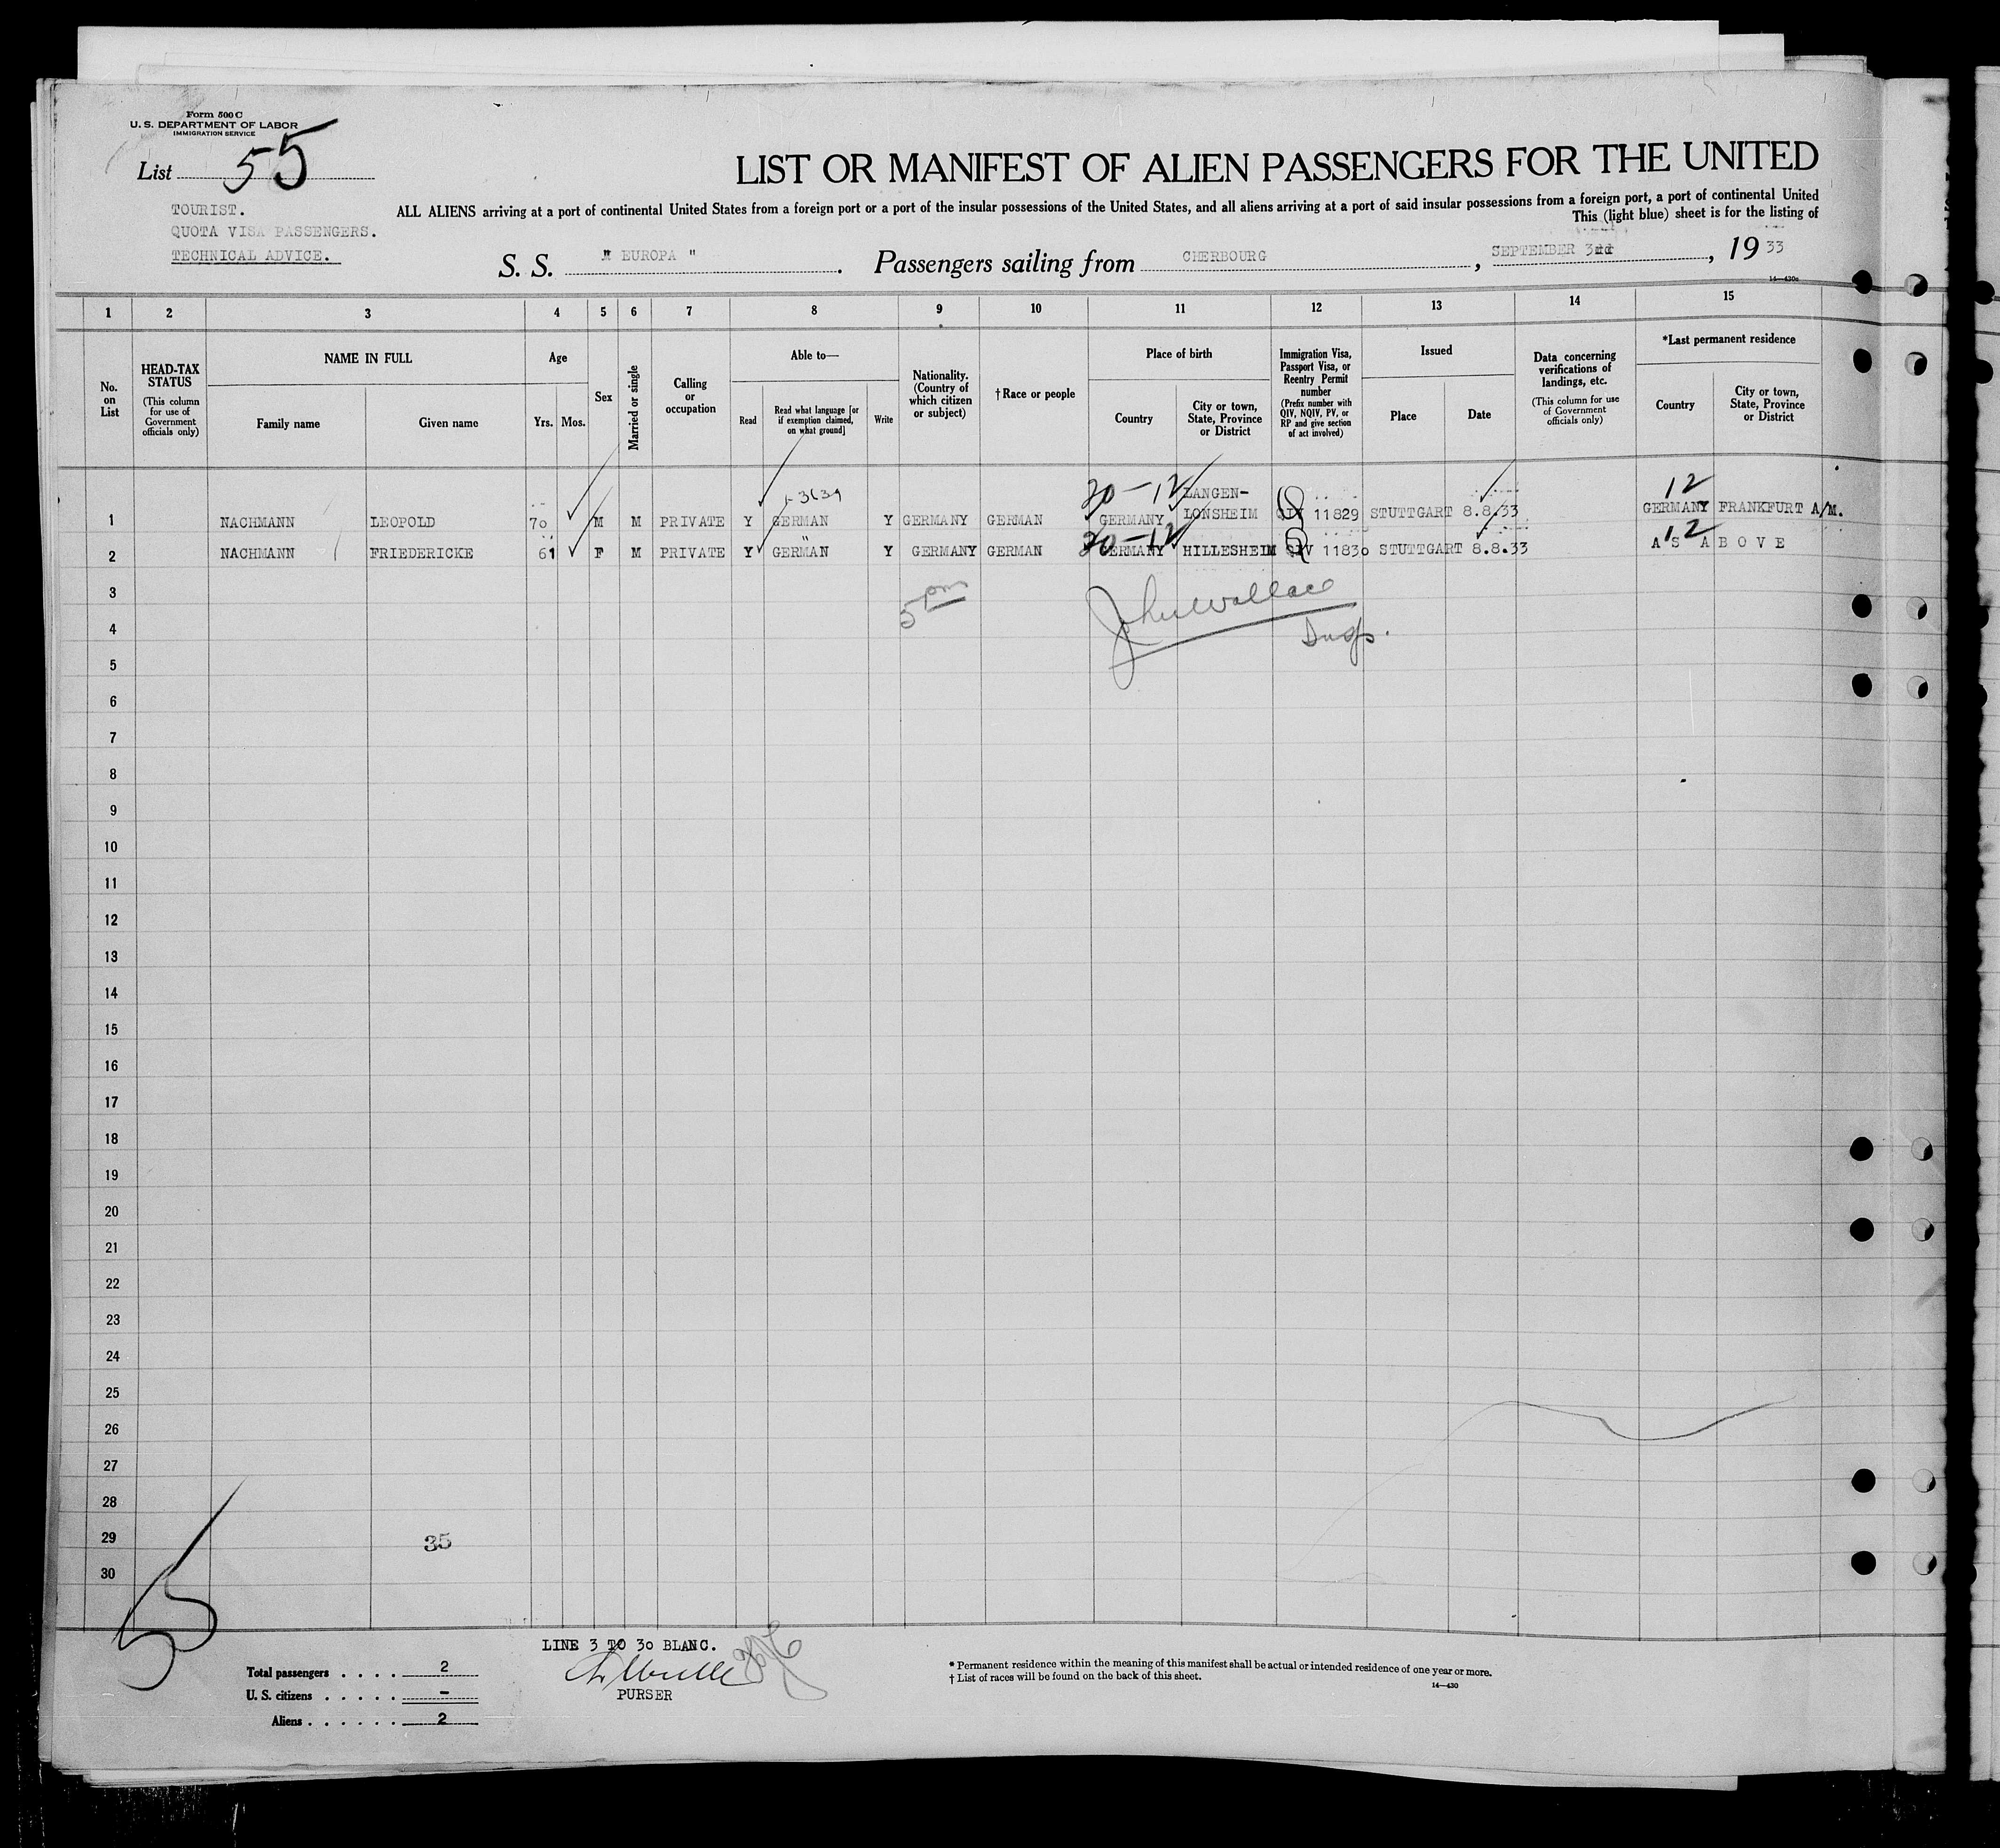 Form 500 C
U. S. DEPARTMENT OF LABOR
IMMIGRATION SERVICE
List 55
LIST OR MANIFEST OF ALIEN PASSENGERS FOR THE UNITED
TOURIST.
QUOTA VISA PASSENGERS.
TECHNICAL ADVICE.
ALL ALIENS arriving at a port of continental United States from a foreign port or a port of the insular possessions of the United States, and all aliens arriving at a port of said insular possessions from a foreign port, a port of continental United
This (light blue) sheet is for the listing of
S. S. " EUROPA " . Passengers sailing from CHERBOURG , SEPTEMBER 3rd , 19 33
14—430c
1 2 3 4 5 6 7 8 9 10 11 12 13 14 15
No. on List
HEAD-TAX STATUS
(This column for use of Government officials only)
NAME IN FULL
Family name
Given name
Age
Yrs. Mos.
Sex
Married or single
Calling or occupation
Able to—
Read
Read what language [or if exemption claimed, on what ground]
Write
Nationality. (Country of which citizen or subject)
† Race or people
Place of birth
Country
City or town, State, Province or District
Immigration Visa, Passport Visa, or Reentry Permit number
(Prefix number with QIV, NQIV, PV, or RP and give section of act involved)
Issued
Place
Date
Data concerning verifications of landings, etc.
(This column for use of Government officials only)
*Last permanent residence
Country
City or town, State, Province or District
20-12 LANGEN- 12
1 NACHMANN LEOPOLD 70 M M PRIVATE Y GERMAN Y GERMANY GERMAN GERMANY LONSHEIM QIV 11829 STUTTGART 8.8.33 GERMANY FRANKFURT A/M.
20-12 12
2 NACHMANN FRIEDERICKE 61 F M PRIVATE Y GERMAN Y GERMANY GERMAN GERMANY HILLESHEIM QIV 11830 STUTTGART 8.8.33 AS ABOVE
3 5 pm John Wallace
4 Insp.
5
6
7
8
9
10
11
12
13
14
15
16
17
18
19
20
21
22
23
24
25
26
27
28
29 35
30
5
LINE 3 TO 30 BLANC.
PURSER
Total passengers . . . . 2
U. S. citizens . . . . . –
Aliens . . . . . . 2
* Permanent residence within the meaning of this manifest shall be actual or intended residence of one year or more.
† List of races will be found on the back of this sheet.
14—430